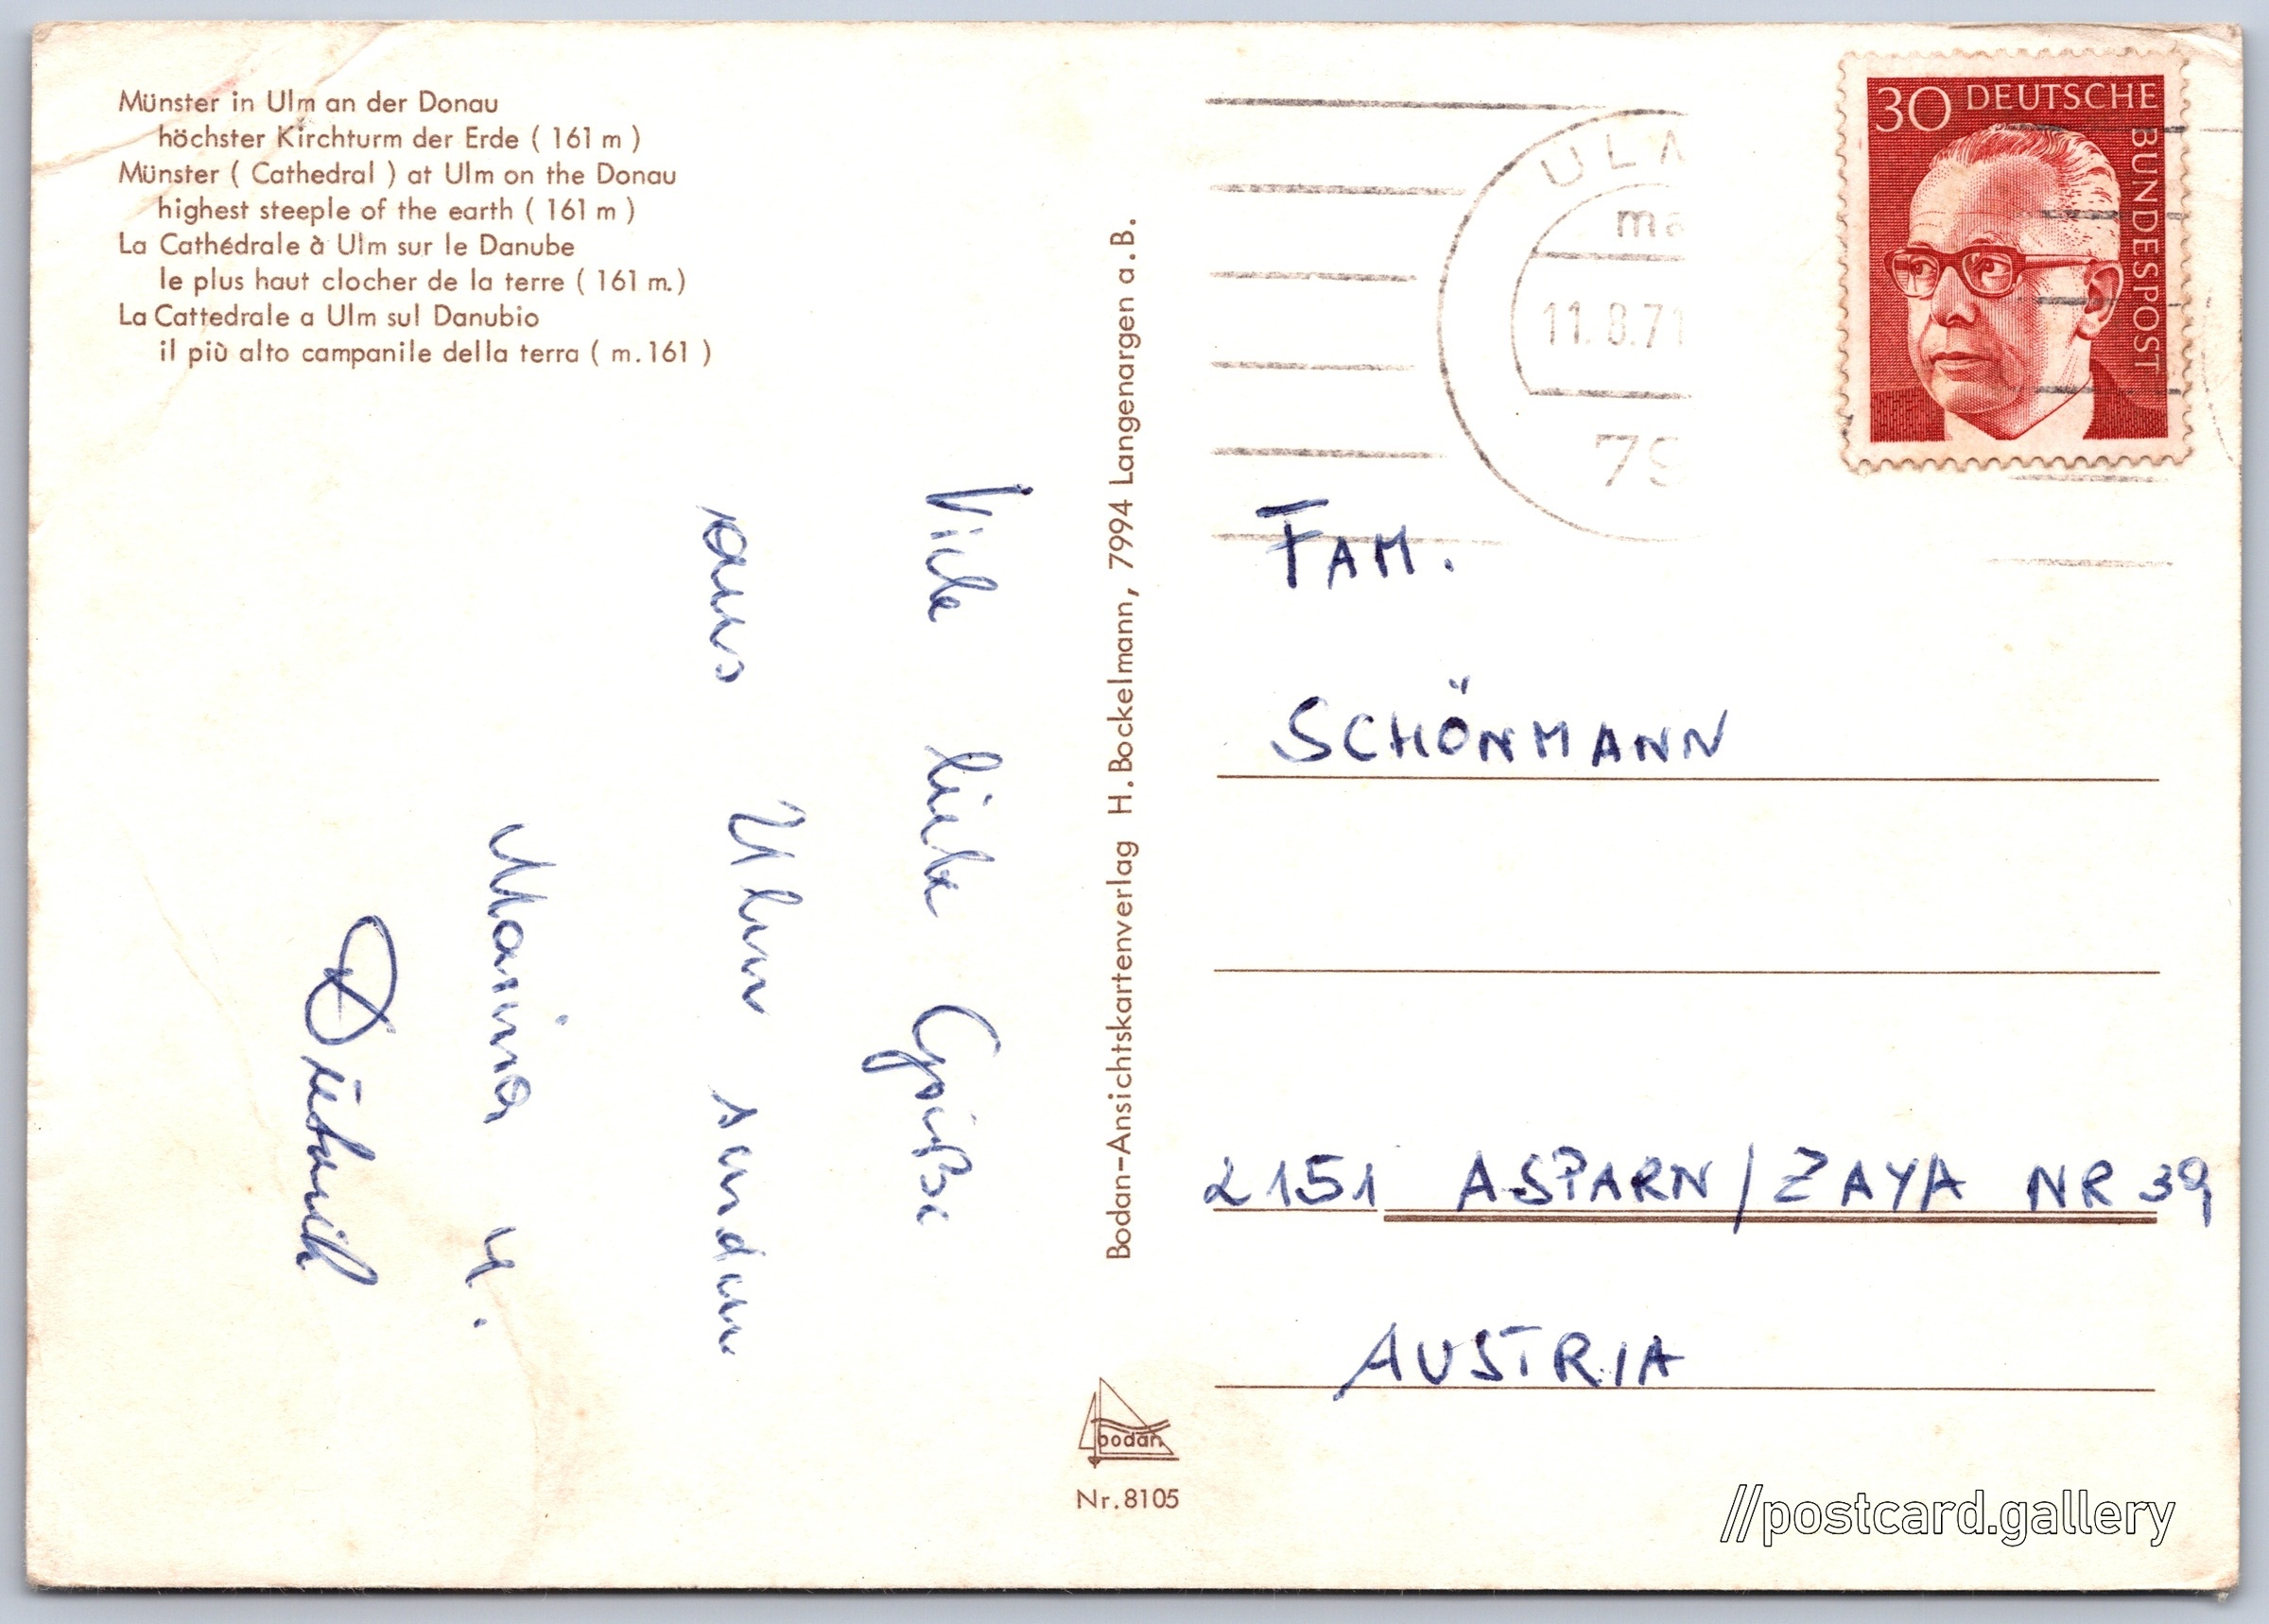 Münster in Ulm an der Donau
höchster Kirchturm der Erde ( 161 m )
Münster ( Cathedral ) at Ulm on the Donau
highest steeple of the earth ( 161 m )
La Cathédrale à Ulm sur le Danube
le plus haut clocher de la terre ( 161 m.)
La Cattedrale a Ulm sul Danubio
il più alto campanile della terra ( m.161 )
Viele liebe Grüße
aus Ulm senden
Marina u.
Dietrich
Bodan-Ansichtskartenverlag H. Bockelmann, 7994 Langenargen a. B.
bodan
Nr.8105
ULM
11.8.71
79
30 DEUTSCHE
BUNDESPOST
FAM.
SCHÖNMANN
2151 ASPARN/ZAYA NR 39
AUSTRIA
//postcard.gallery